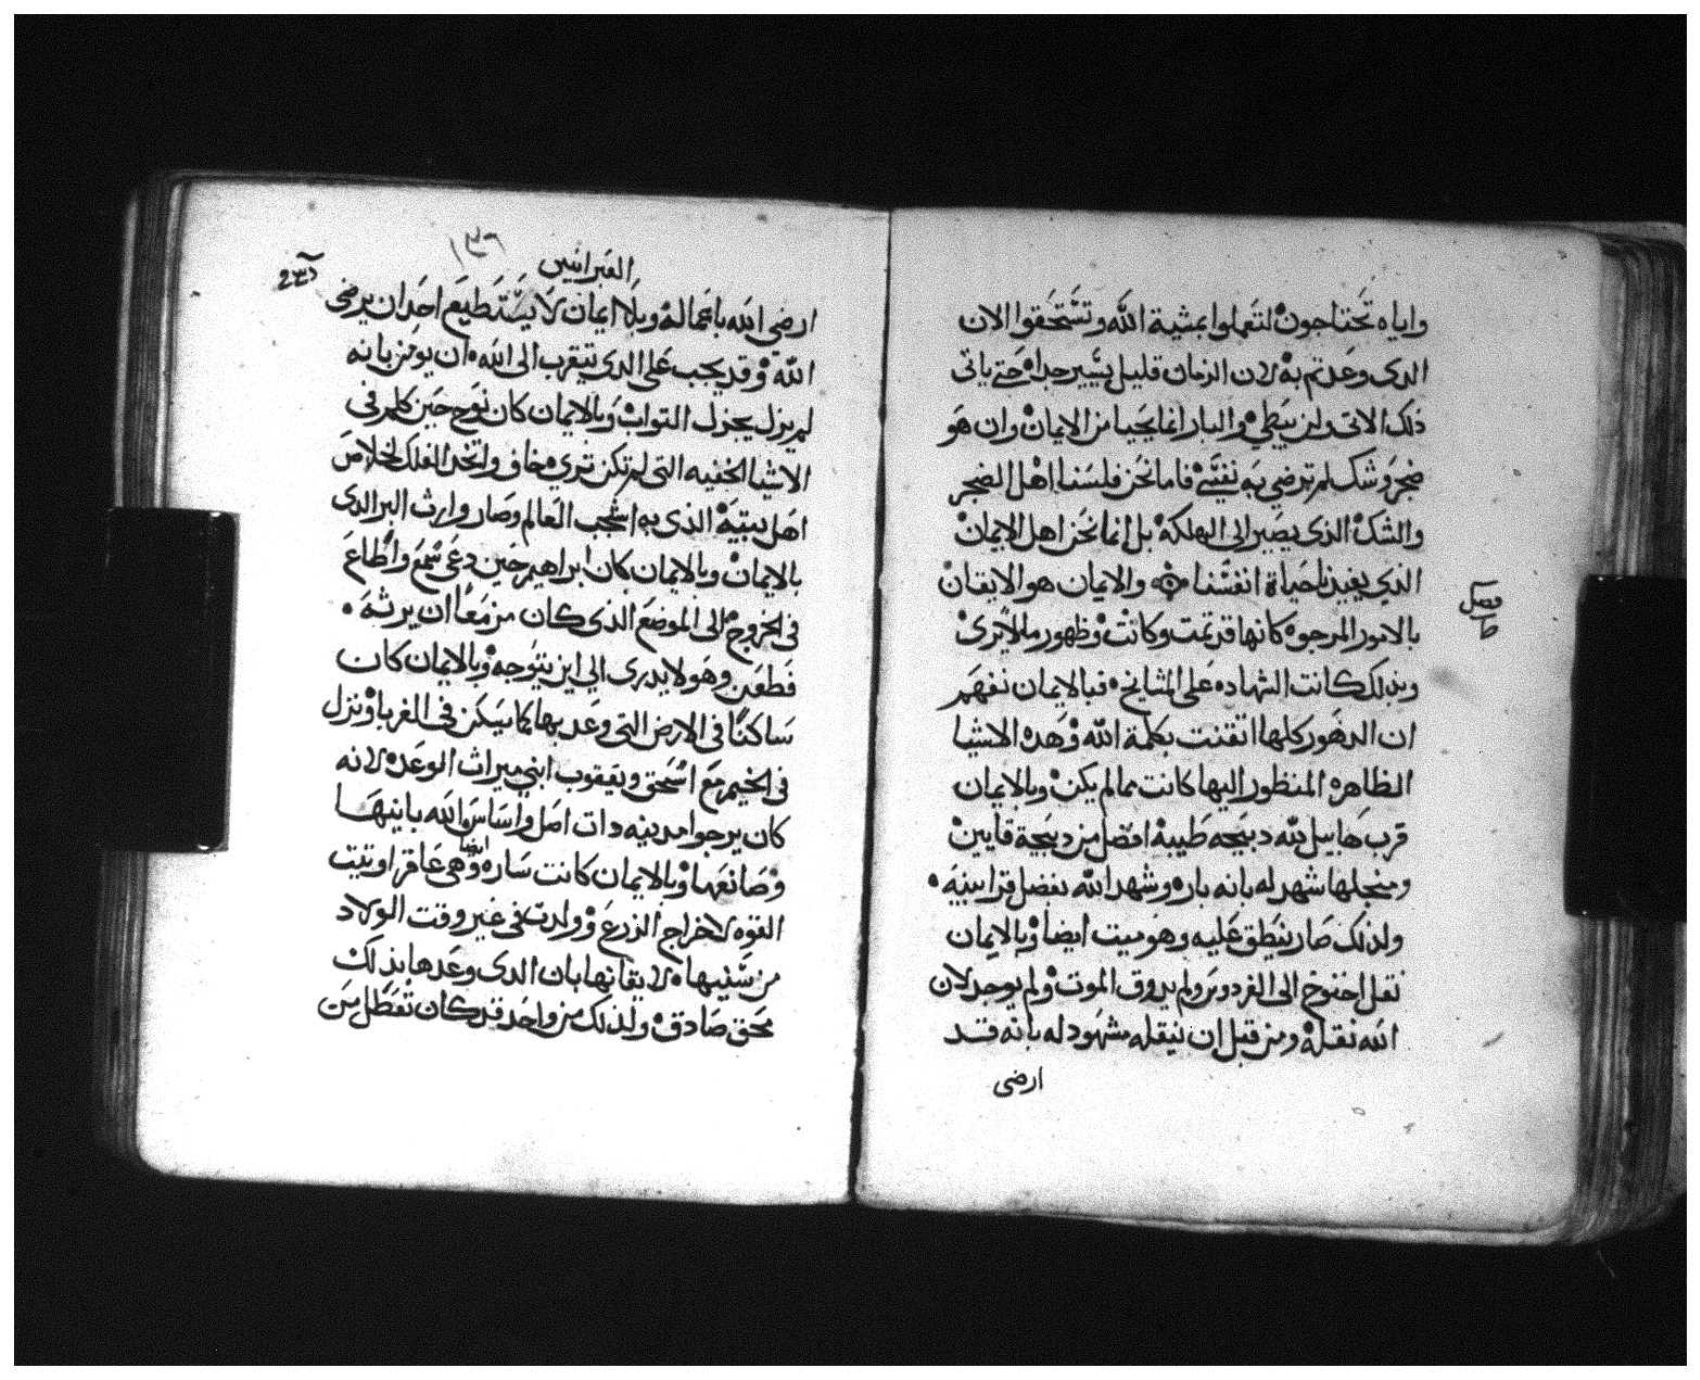 واياه تحتاجون لتعملوا بمشية الله وتستحقوا الان
الدى وعدتم به لان الزمان قليل يسير جدا حتى ياتى
ذلك الاتى ولن يبطي والبار انما يحيا من الايمان وان هو
ضجر وشك لم ترضي به نفسي فاما نحن فلسنا اهل الضجر
والشك الذى يصير الى الهلكه بل انما نحن اهل الايمان
الذي يفيدنا حياة انفسنا والايمان هو الايقان
بالامور المرجوه كانها قد تمت وكانت وظهور ما لا يرى
وبذلك كانت الشهاده على المشايخ فبالايمان نفهم
ان الدهور كلها اتقنت بكلمة الله وهده الاشيا
الظاهره المنظور اليها كانت مما لم يكن وبالايمان
قرب هابيل لله دبيحه طيبة افضل من دبيحة قايين
ومنجلها شهد له بانه باره وشهد الله بفضل قرابينه
ولذلك صار ينطق عليه وهو ميت ايضا وبالايمان
نقل اخنوخ الى الفردوس ولم يدوق الموت ولم يوجد لان
الله نقله ومن قبل ان ينقله مشهود له بانه قد
ارضى
فصل
العبرانيين
ارضي الله باعماله وبلا ايمان لا يستطيع احد ان يرضى
الله وقد يجب على الدى يتقرب الى الله ان يومن بانه
لم يزل يجزل التواب وبالايمان كان نوح حين كلم فى
الاشيا الخفيه التى لم تكن ترى خاف واتخد الفلك لخلاص
اهل بيته الذى به اشجب العالم وصار وارث البر الدى
بالايمان وبالايمان كان ابراهيم حين دعى سمع واطاع
فى الخروج الى الموضع الذى كان مزمعا ان يرثه
فطعن وهو لا يدرى الي اين يتوجه وبالايمان كان
ساكنا فى الارض التى وعد بها كما يسكن فى الغربا ونزل
فى الخيم مع اسحق ويعقوب ابني ميراث الوعده لانه
كان يرجوا مدينه دات اصل واساس الله بانيها
وصانعها وبالايمان كانت ساره ايضا وهى عاقر اوتيت
القوه لاخراج الزرع وولدت فى غير وقت الولاد
من سنيها لايقانها بان الدى وعدها بذلك
محق صادق ولذلك من واحد قد كان تعطل من